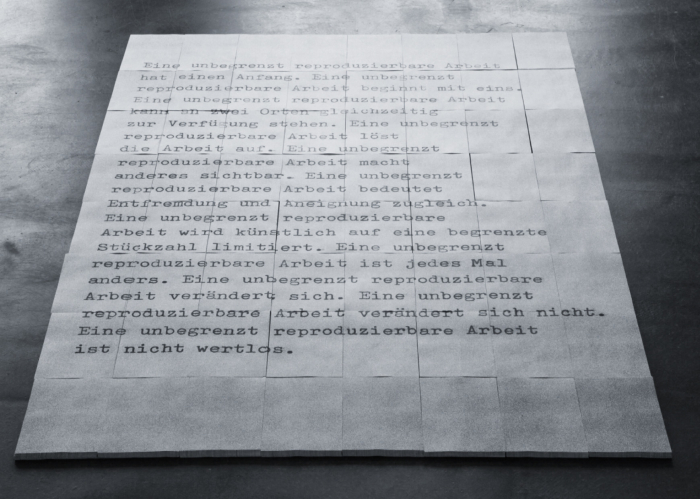 Eine unbegrenzt reproduzierbare Arbeit
hat einen Anfang. Eine unbegrenzt
reproduzierbare Arbeit beginnt mit eins.
Eine unbegrenzt reproduzierbare Arbeit
kann an zwei Orten gleichzeitig
zur Verfügung stehen. Eine unbegrenzt
reproduzierbare Arbeit löst
die Arbeit auf. Eine unbegrenzt
reproduzierbare Arbeit macht
anderes sichtbar. Eine unbegrenzt
reproduzierbare Arbeit bedeutet
Entfremdung und Aneignung zugleich.
Eine unbegrenzt reproduzierbare
Arbeit wird künstlich auf eine begrenzte
Stückzahl limitiert. Eine unbegrenzt
reproduzierbare Arbeit ist jedes Mal
anders. Eine unbegrenzt reproduzierbare
Arbeit verändert sich. Eine unbegrenzt
reproduzierbare Arbeit verändert sich nicht.
Eine unbegrenzt reproduzierbare Arbeit
ist nicht wertlos.